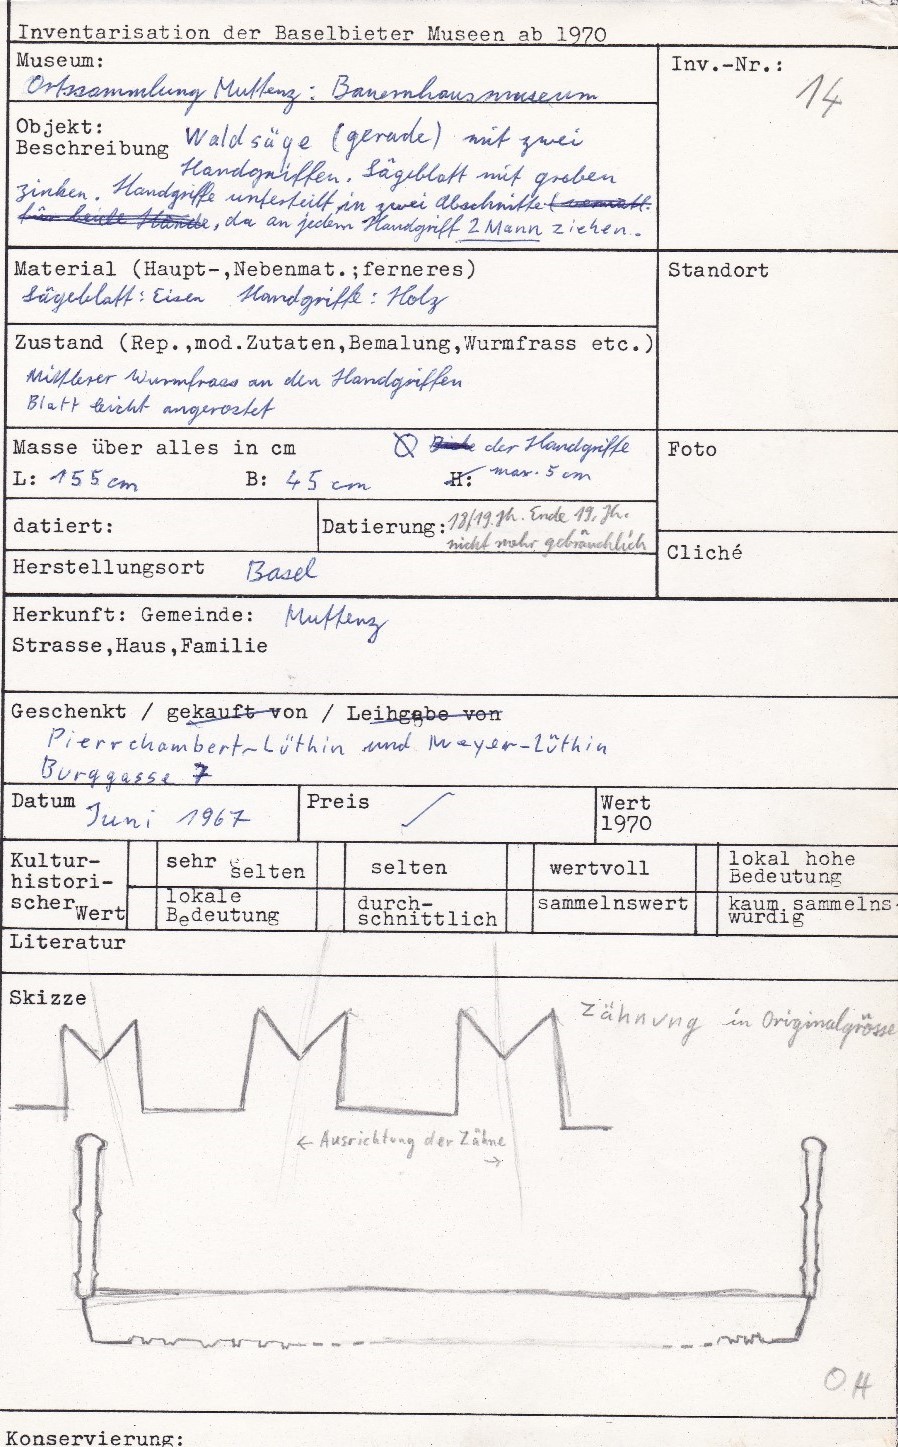 Inventarisation der Baselbieter Museen ab 1970
Museum:
Ortssammlung Muttenz: Bauernhausmuseum
Inv.-Nr.: 14
Objekt:
Beschreibung Waldsäge (gerade) mit zwei
Handgriffen. Sägeblatt mit groben
Zinken. Handgriffe unterteilt in zwei Abschnitte
für beide Hände, da an jedem Handgriff 2 Mann ziehen.
Material (Haupt-,Nebenmat.;ferneres)
Sägeblatt: Eisen Handgriffe: Holz
Standort
Zustand (Rep.,mod.Zutaten,Bemalung,Wurmfrass etc.)
Mittlerer Wurmfrass an den Handgriffen
Blatt leicht angerostet
Masse über alles in cm Ø der Handgriffe
L: 155 cm B: 45 cm H: max. 5 cm
Foto
datiert:
Datierung: 18/19. Jh. Ende 19. Jh.
nicht mehr gebräuchlich
Cliché
Herstellungsort Basel
Herkunft: Gemeinde: Muttenz
Strasse,Haus,Familie
Geschenkt / gekauft von / Leihgabe von
Pierrehambert-Lüthin und Meyer-Lüthin
Burggasse 7
Datum Juni 1967
Preis
Wert
1970
Kultur-
histori-
scher Wert
sehr selten
selten
wertvoll
lokal hohe
Bedeutung
lokale
Bedeutung
durch-
schnittlich
sammelnswert
kaum sammelns-
würdig
Literatur
Skizze
Zähnung in Originalgrösse
← Ausrichtung der Zähne
→
OH
Konservierung: